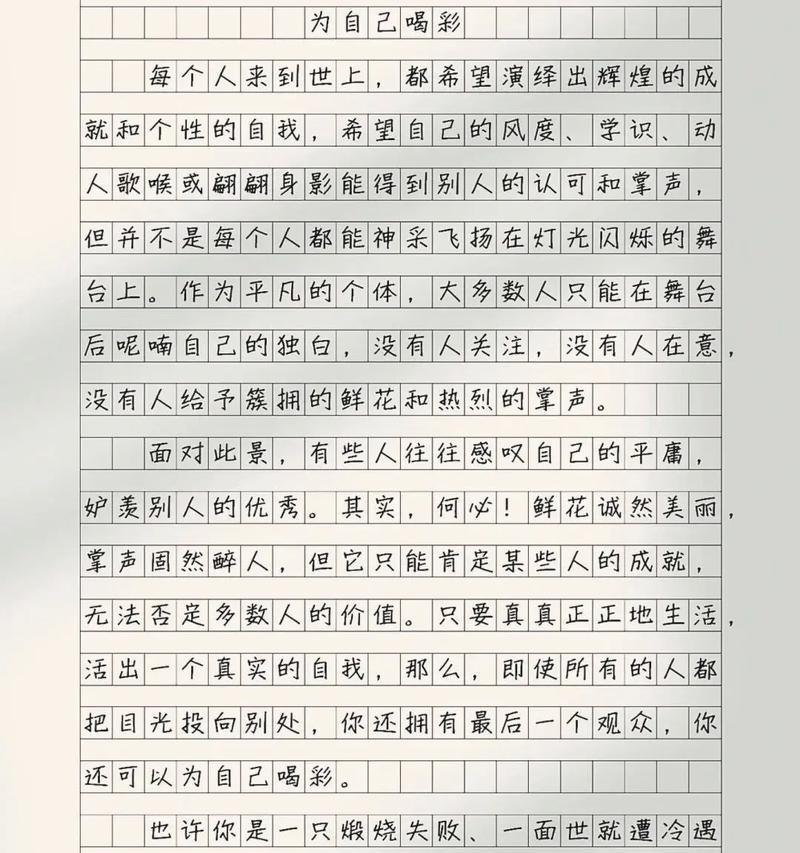 为自己喝彩
每个人来到世上，都希望演绎出辉煌的成
就和个性的自我，希望自己的风度、学识、动
人歌喉或翩翩身影能得到别人的认可和掌声，
但并不是每个人都能神采飞扬在灯光闪烁的舞
台上。作为平凡的个体，大多数人只能在舞台
后呢喃自己的独白，没有人关注，没有人在意，
没有人给予簇拥的鲜花和热烈的掌声。
面对此景，有些人往往感叹自己的平庸，
妒羡别人的优秀。其实，何必！鲜花诚然美丽，
掌声固然醉人，但它只能肯定某些人的成就，
无法否定多数人的价值。只要真真正正地生活，
活出一个真实的自我，那么，即使所有的人都
把目光投向别处，你还拥有最后一个观众，你
还可以为自己喝彩。
也许你是一只煅烧失败、一面世就遭冷遇